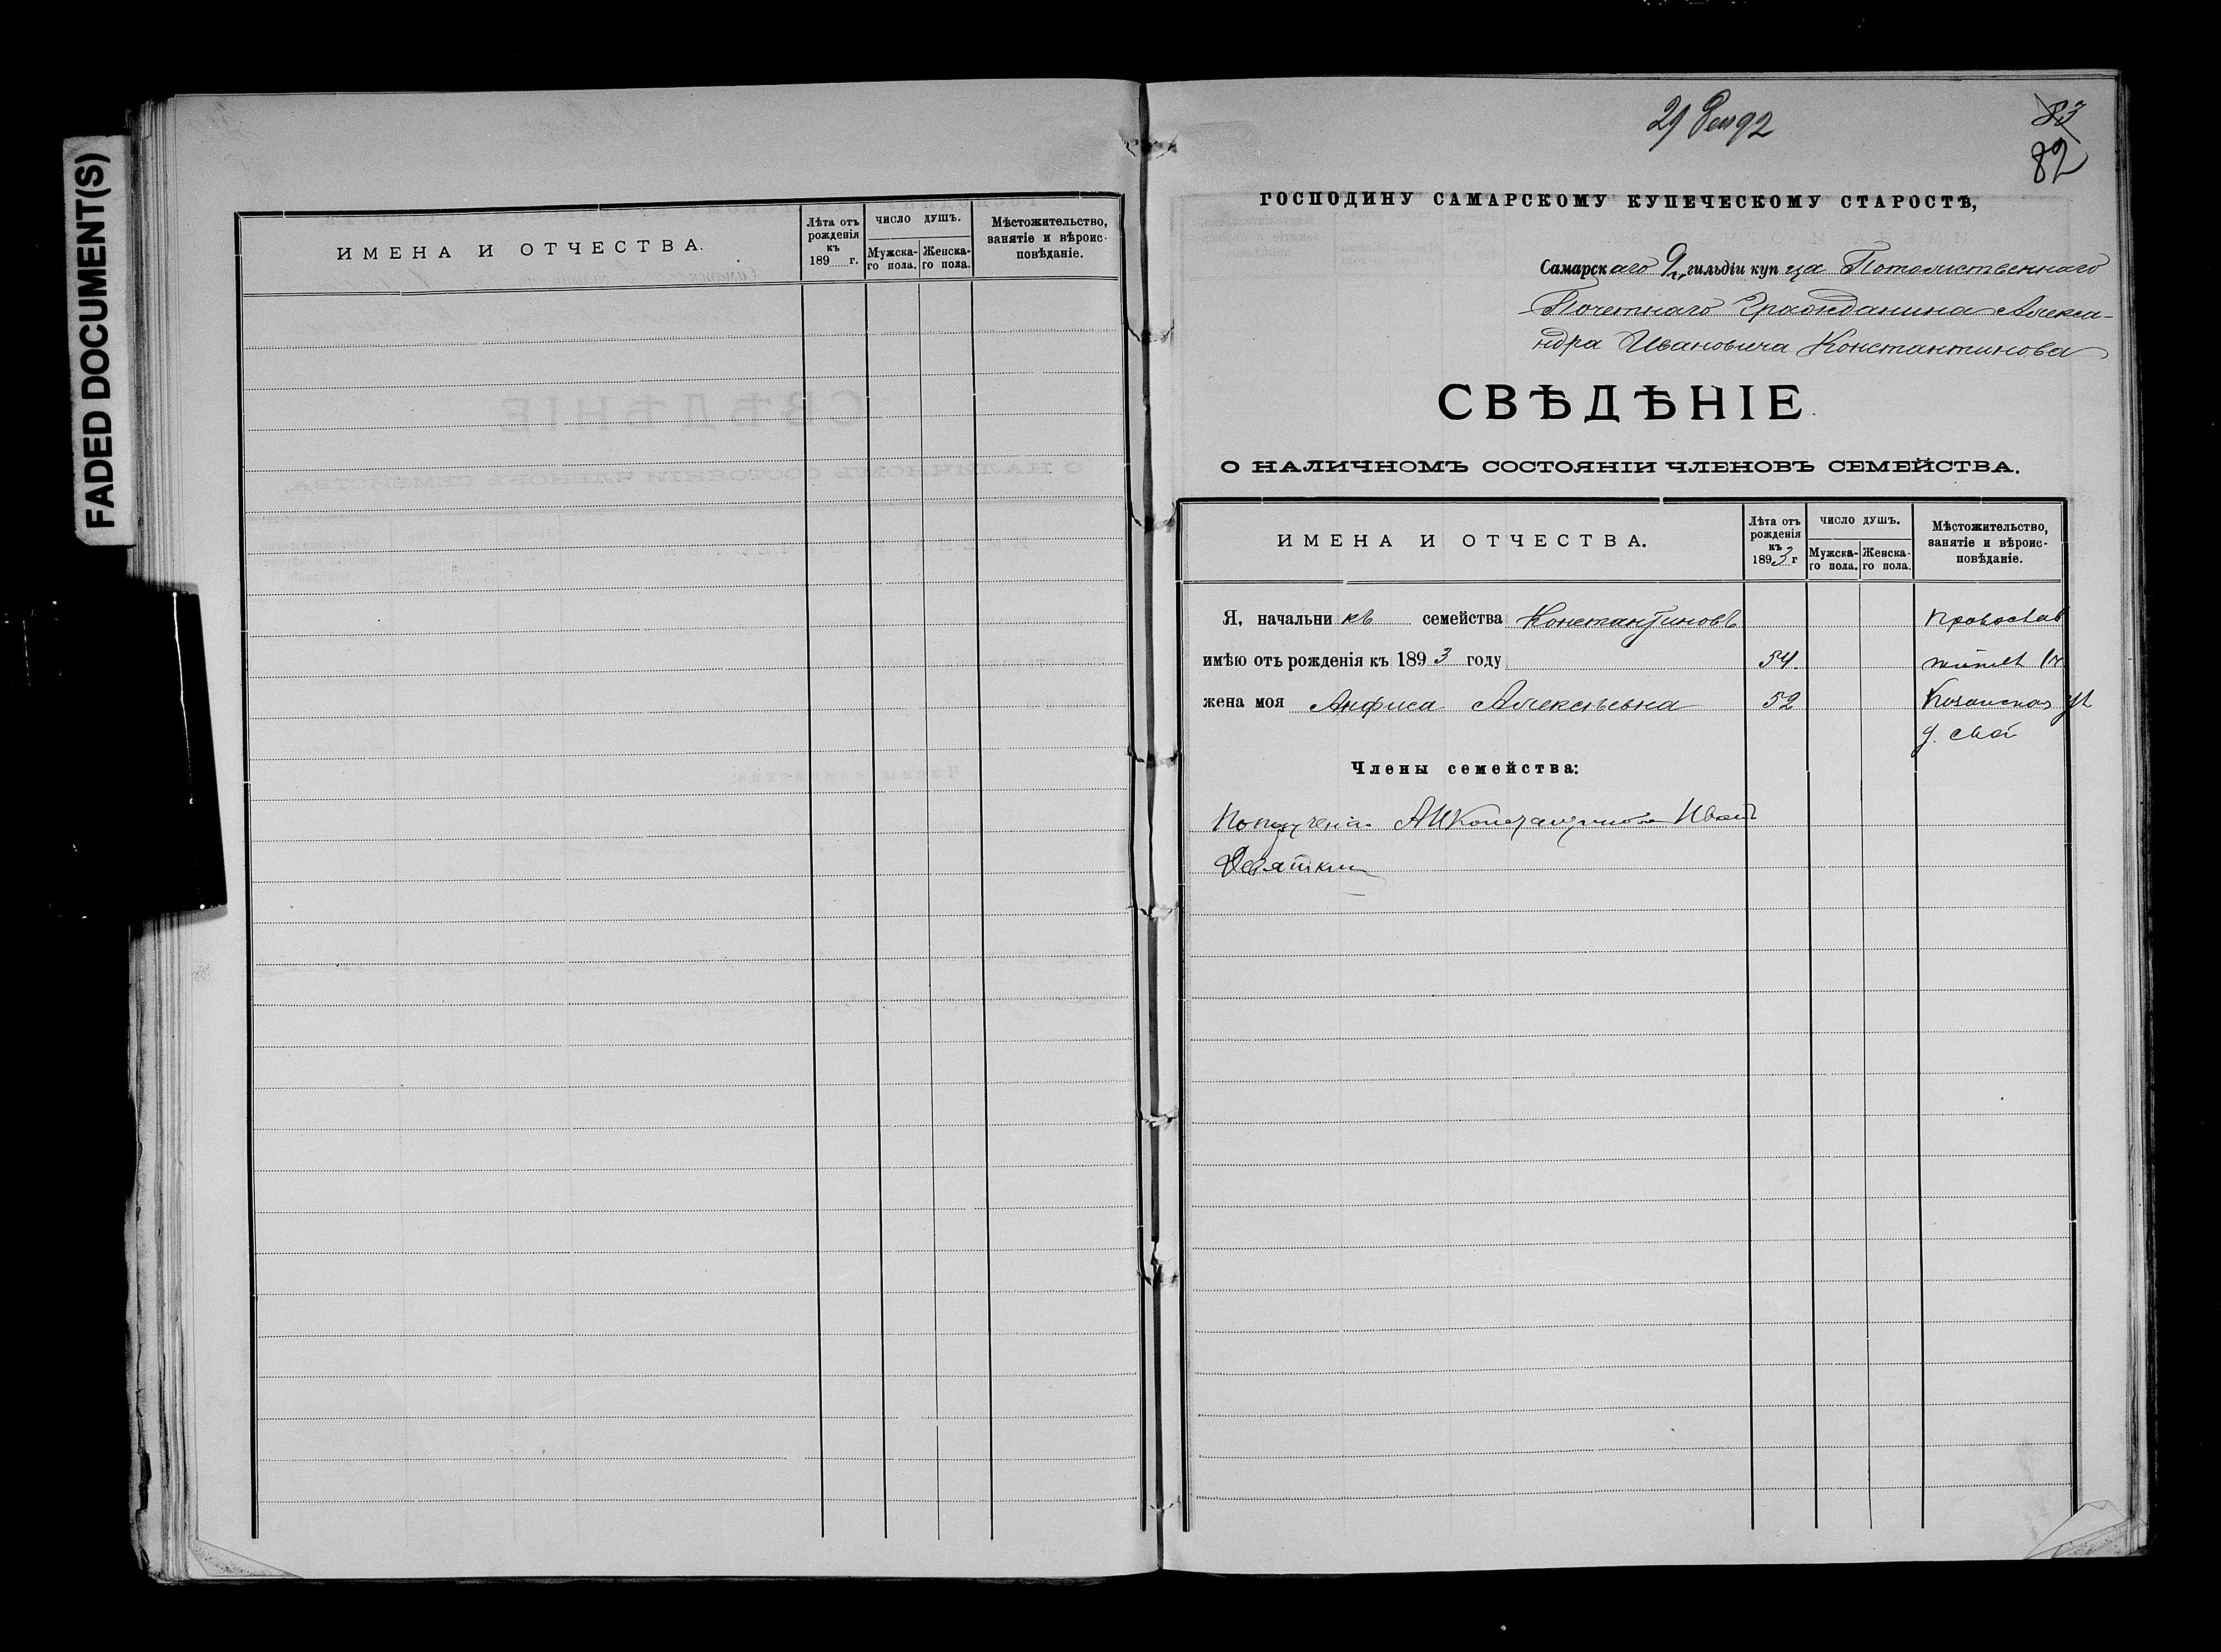 FADED DOCUMENT(S)
ИМЕНА И ОТЧЕСТВА.
Лѣта отъ рожденія къ 189 г.
ЧИСЛО ДУШЪ.
Мужска-го пола.
Женска-го пола.
Мѣстожительство, занятіе и вѣроис-повѣданіе.
83
82
ГОСПОДИНУ САМАРСКОМУ КУПЕЧЕСКОМУ СТАРОСТѢ,
Самарскаго гильдіи купца Потомственнаго
Почетнаго Гражданина Алекса-
ндра Ивановича Константинова
СВѢДѢНІЕ
О НАЛИЧНОМЪ СОСТОЯНІИ ЧЛЕНОВЪ СЕМЕЙСТВА.
ИМЕНА И ОТЧЕСТВА.
Лѣта отъ рожденія къ 1893 г
ЧИСЛО ДУШЪ.
Мужска-го пола.
Женска-го пола.
Мѣстожительство, занятіе и вѣроис-повѣданіе.
Я, начальникъ семейства Константиновъ Православ
имѣю отъ рожденія къ 1893 году 54.
жена моя Анфиса Алексѣевна 52 Казанская ул
д. свой
Члены семейства: